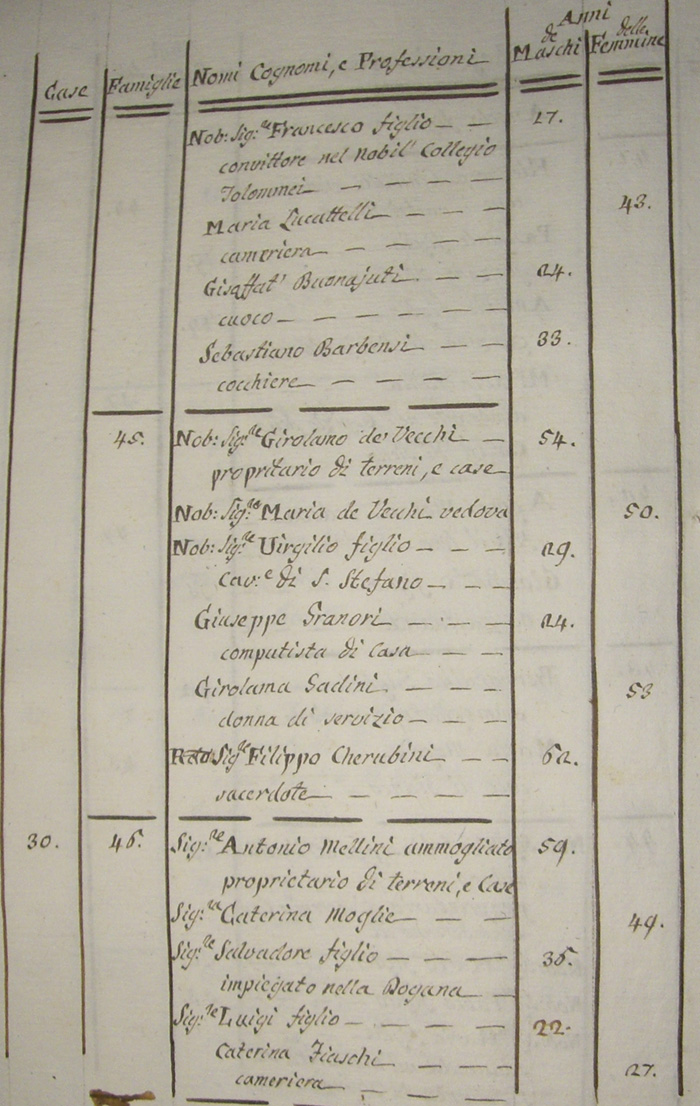 Anni
Case Famiglie Nomi Cognomi, e Professioni de Maschi delle Femmine
Nob: Sig:re Francesco figlio — — 17.
convittore nel Nobil' Collegio
Tolommei — — — —
Maria Lucattelli — — — 43.
cameriera — — — —
Gisaffat' Buonajuti — — 24.
cuoco — — — — —
Sebastiano Barbensi — — 33.
cocchiere — — — —
45. Nob: Sig:re Girolamo de' Vecchi — 54.
propritario di terreni, e case
Nob: Sig:ra Maria de Vecchi vedova 50.
Nob: Sig:re Virgilio figlio — — — 29.
Cav:e di S. Stefano — — —
Giuseppe Granori — — — 24.
computista di Casa — — —
Girolama Sadini — — — — 53
donna di servizio — — —
Sig:re Filippo Cherubini — — 62.
sacerdote — — — —
30. 46. Sig:re Antonio Mellini ammogliato 59.
proprietario di terreni, e Case
Sig:ra Caterina Moglie — — — 49.
Sig:re Salvadore figlio — — — 36.
impiegato nella Dogana —
Sig:re Luigi figlio — — — — 22.
Caterina Fiaschi — — — 27.
cameriera — — — —